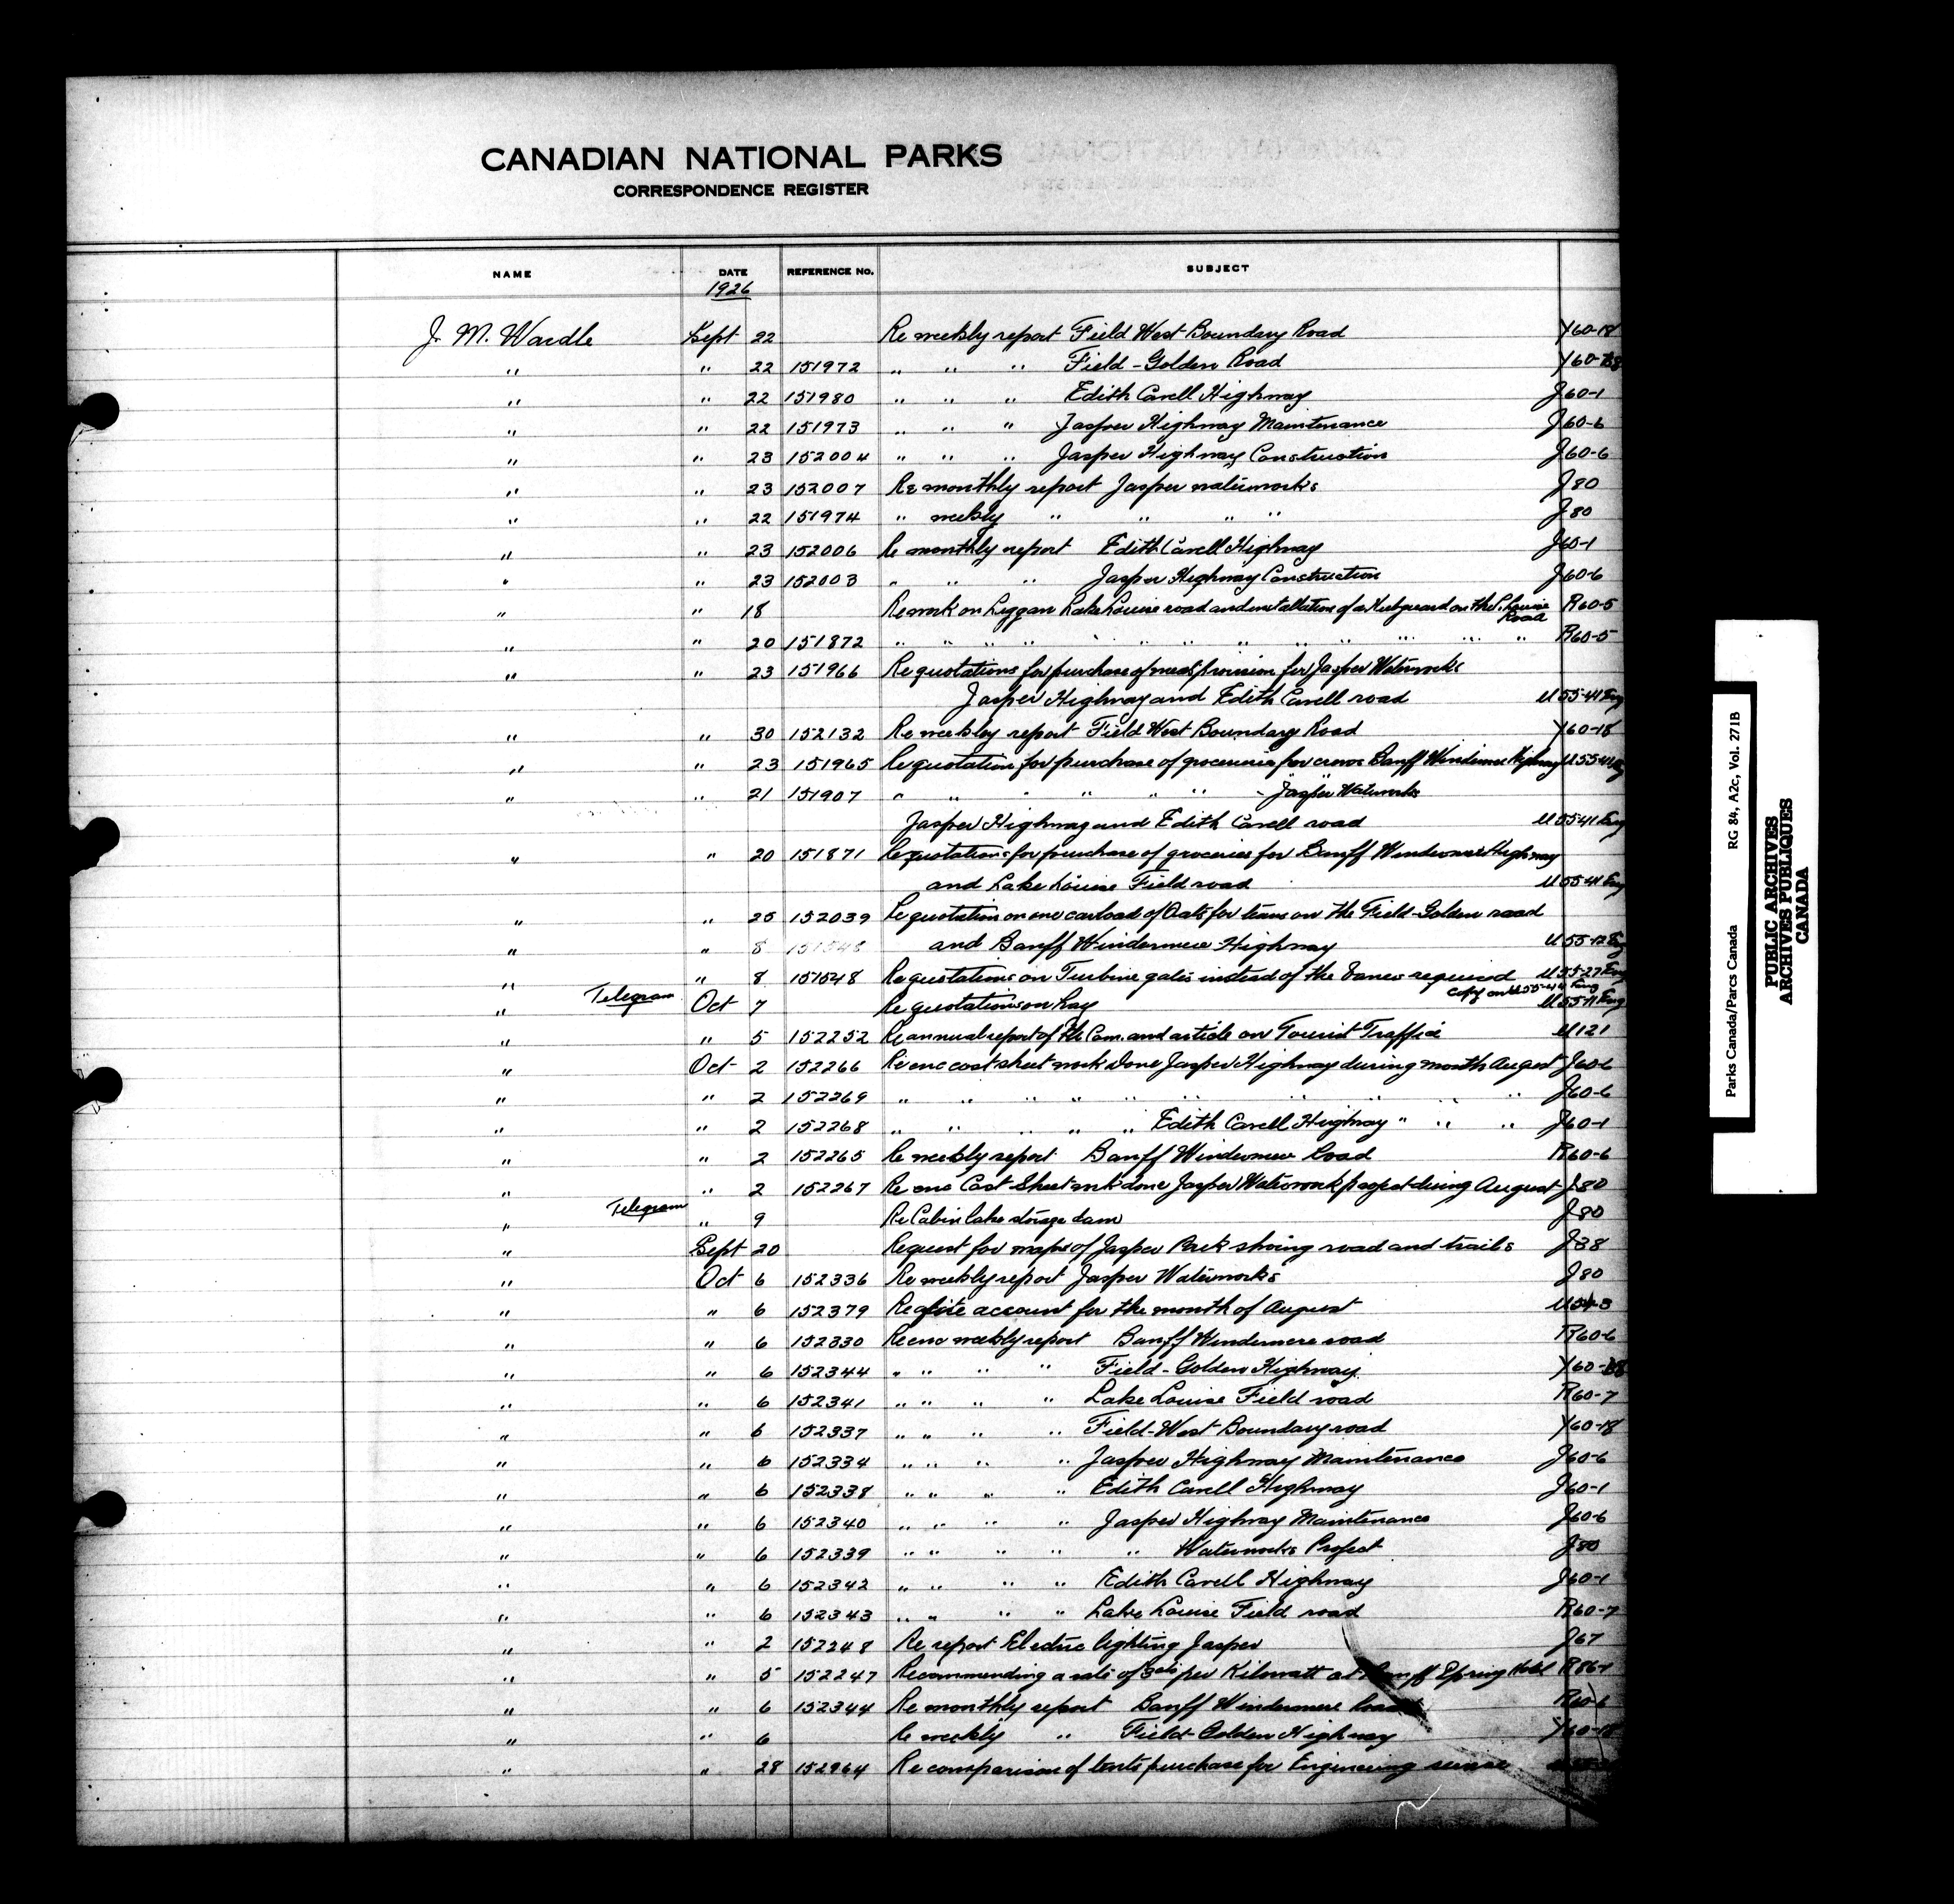 CANADIAN NATIONAL PARKS
CORRESPONDENCE REGISTER
NAME DATE REFERENCE No. SUBJECT
1926
J. M. Wardle Sept 22 Re weekly report Field West Boundary Road Y60-18
" " 22 151972 " " " Field-Golden Road Y60-
" " 22 151980 " " " Edith Cavell Highway J60-1
" " 22 151973 " " " Jasper Highway Maintenance J60-6
" " 23 152004 " " " Jasper Highway Construction J60-6
" " 23 152007 Re monthly report Jasper waterworks J80
" " 22 151974 " weekly " " " " J80
" " 23 152006 Re monthly report Edith Cavell Highway J60-1
" " 23 152003 " " " Jasper Highway Construction J60-6
" " 18 Re work on Laggan Lake Louise road and installation of a on the L. Louise Road R60-5
" " 20 151872 " " " " " " " " " " " " " R60-5
" " 23 151966 Re quotations for purchase of meat provision for Jasper Waterworks
Jasper Highway and Edith Cavell road U55-41 Eng
" " 30 152132 Re weekly report Field West Boundary Road Y60-18
" " 23 151965 Re quotation for purchase of groceries for crews Banff Windermere Highway U55-41 Eng
" " 21 151907 " " " " " " " Jasper Waterworks
Jasper Highway and Edith Cavell road U55-41 Eng
" " 20 151871 Re quotations for purchase of groceries for Banff Windermere Highway
and Lake Louise Field road U55-41 Eng
" " 25 152039 Re quotation on one carload of Oats for teams on the Field-Golden road
" " 8 151548 and Banff Windermere Highway U55-12 Eng
" " 8 151548 Re quotations on Turbine gates instead of the vanes required U55-27 Eng
copy on U55-44 Eng
" Telegram Oct 7 Re quotations on hay U55-11 Eng
" " 5 152252 Re annual report of the Com. and article on Tourist Traffic U121
" Oct 2 152266 Re enc cost sheet work done Jasper Highway during month August J60-6
" " 2 152269 " " " " " " " " " " J60-6
" " 2 152268 " " " " " Edith Cavell Highway " " " J60-1
" " 2 152265 Re weekly report Banff Windermere Road R60-6
" " 2 152267 Re enc Cost Sheet work done Jasper Waterwork project during August J80
" Telegram " 9 Re Cabin lake storage dam J80
" Sept 20 Request for maps of Jasper Park showing road and trails J38
" Oct 6 152336 Re weekly report Jasper Waterworks J80
" " 6 152379 Re account for the month of August U54-3
" " 6 152330 Re enc weekly report Banff Windermere road R60-6
" " 6 152344 " " " " Field-Golden Highway Y60-
" " 6 152341 " " " " Lake Louise Field road R60-7
" " 6 152337 " " " " Field-West Boundary road Y60-18
" " 6 152334 " " " " Jasper Highway Maintenance J60-6
" " 6 152338 " " " " Edith Cavell Highway J60-1
" " 6 152340 " " " " Jasper Highway Maintenance J60-6
" " 6 152339 " " " " " Waterworks Project J80
" " 6 152342 " " " " Edith Cavell Highway J60-1
" " 6 152343 " " " " Lake Louise Field road R60-7
" " 2 152248 Re report Electric lighting Jasper J67
" " 5 152247 Recommending a rate of 3cts per Kilowatt at Banff Spring Hotel R86-1
" " 6 152344 Re monthly report Banff Windermere Road R60-6
" " 6 Re weekly " Field-Golden Highway Y60-18
" " 28 152964 Re comparison of tents purchase for Engineering service
Parks Canada/Parcs Canada RG 84, A2c, Vol. 271B
PUBLIC ARCHIVES
ARCHIVES PUBLIQUES
CANADA